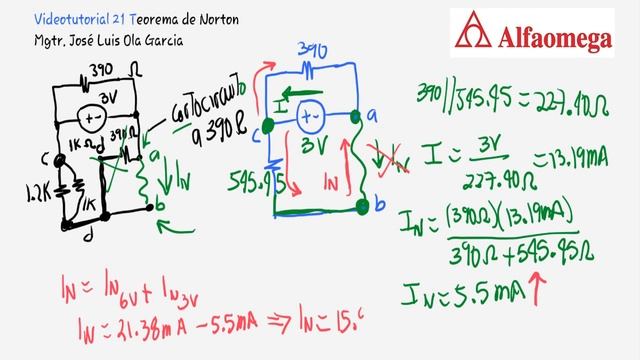 Videotutorial 21 Teorema de Norton
Mgtr. José Luis Ola Garcia
Alfaomega
390 Ω
3V
+ -
390Ω
1KΩ
d
c
a
1.2K
1K
b
d
IN
cortocircuito
a 390Ω
390
I
+ -
a
c
3V
545.45
IN
IN
b
390//545.45 = 227.40Ω
I = 3V / 227.40Ω = 13.19mA
IN = (390Ω)(13.19mA) / 390Ω + 545.45Ω
IN = 5.5mA ↑
IN = IN6V + IN3V
IN = 21.38mA - 5.5mA ⇒ IN = 15.